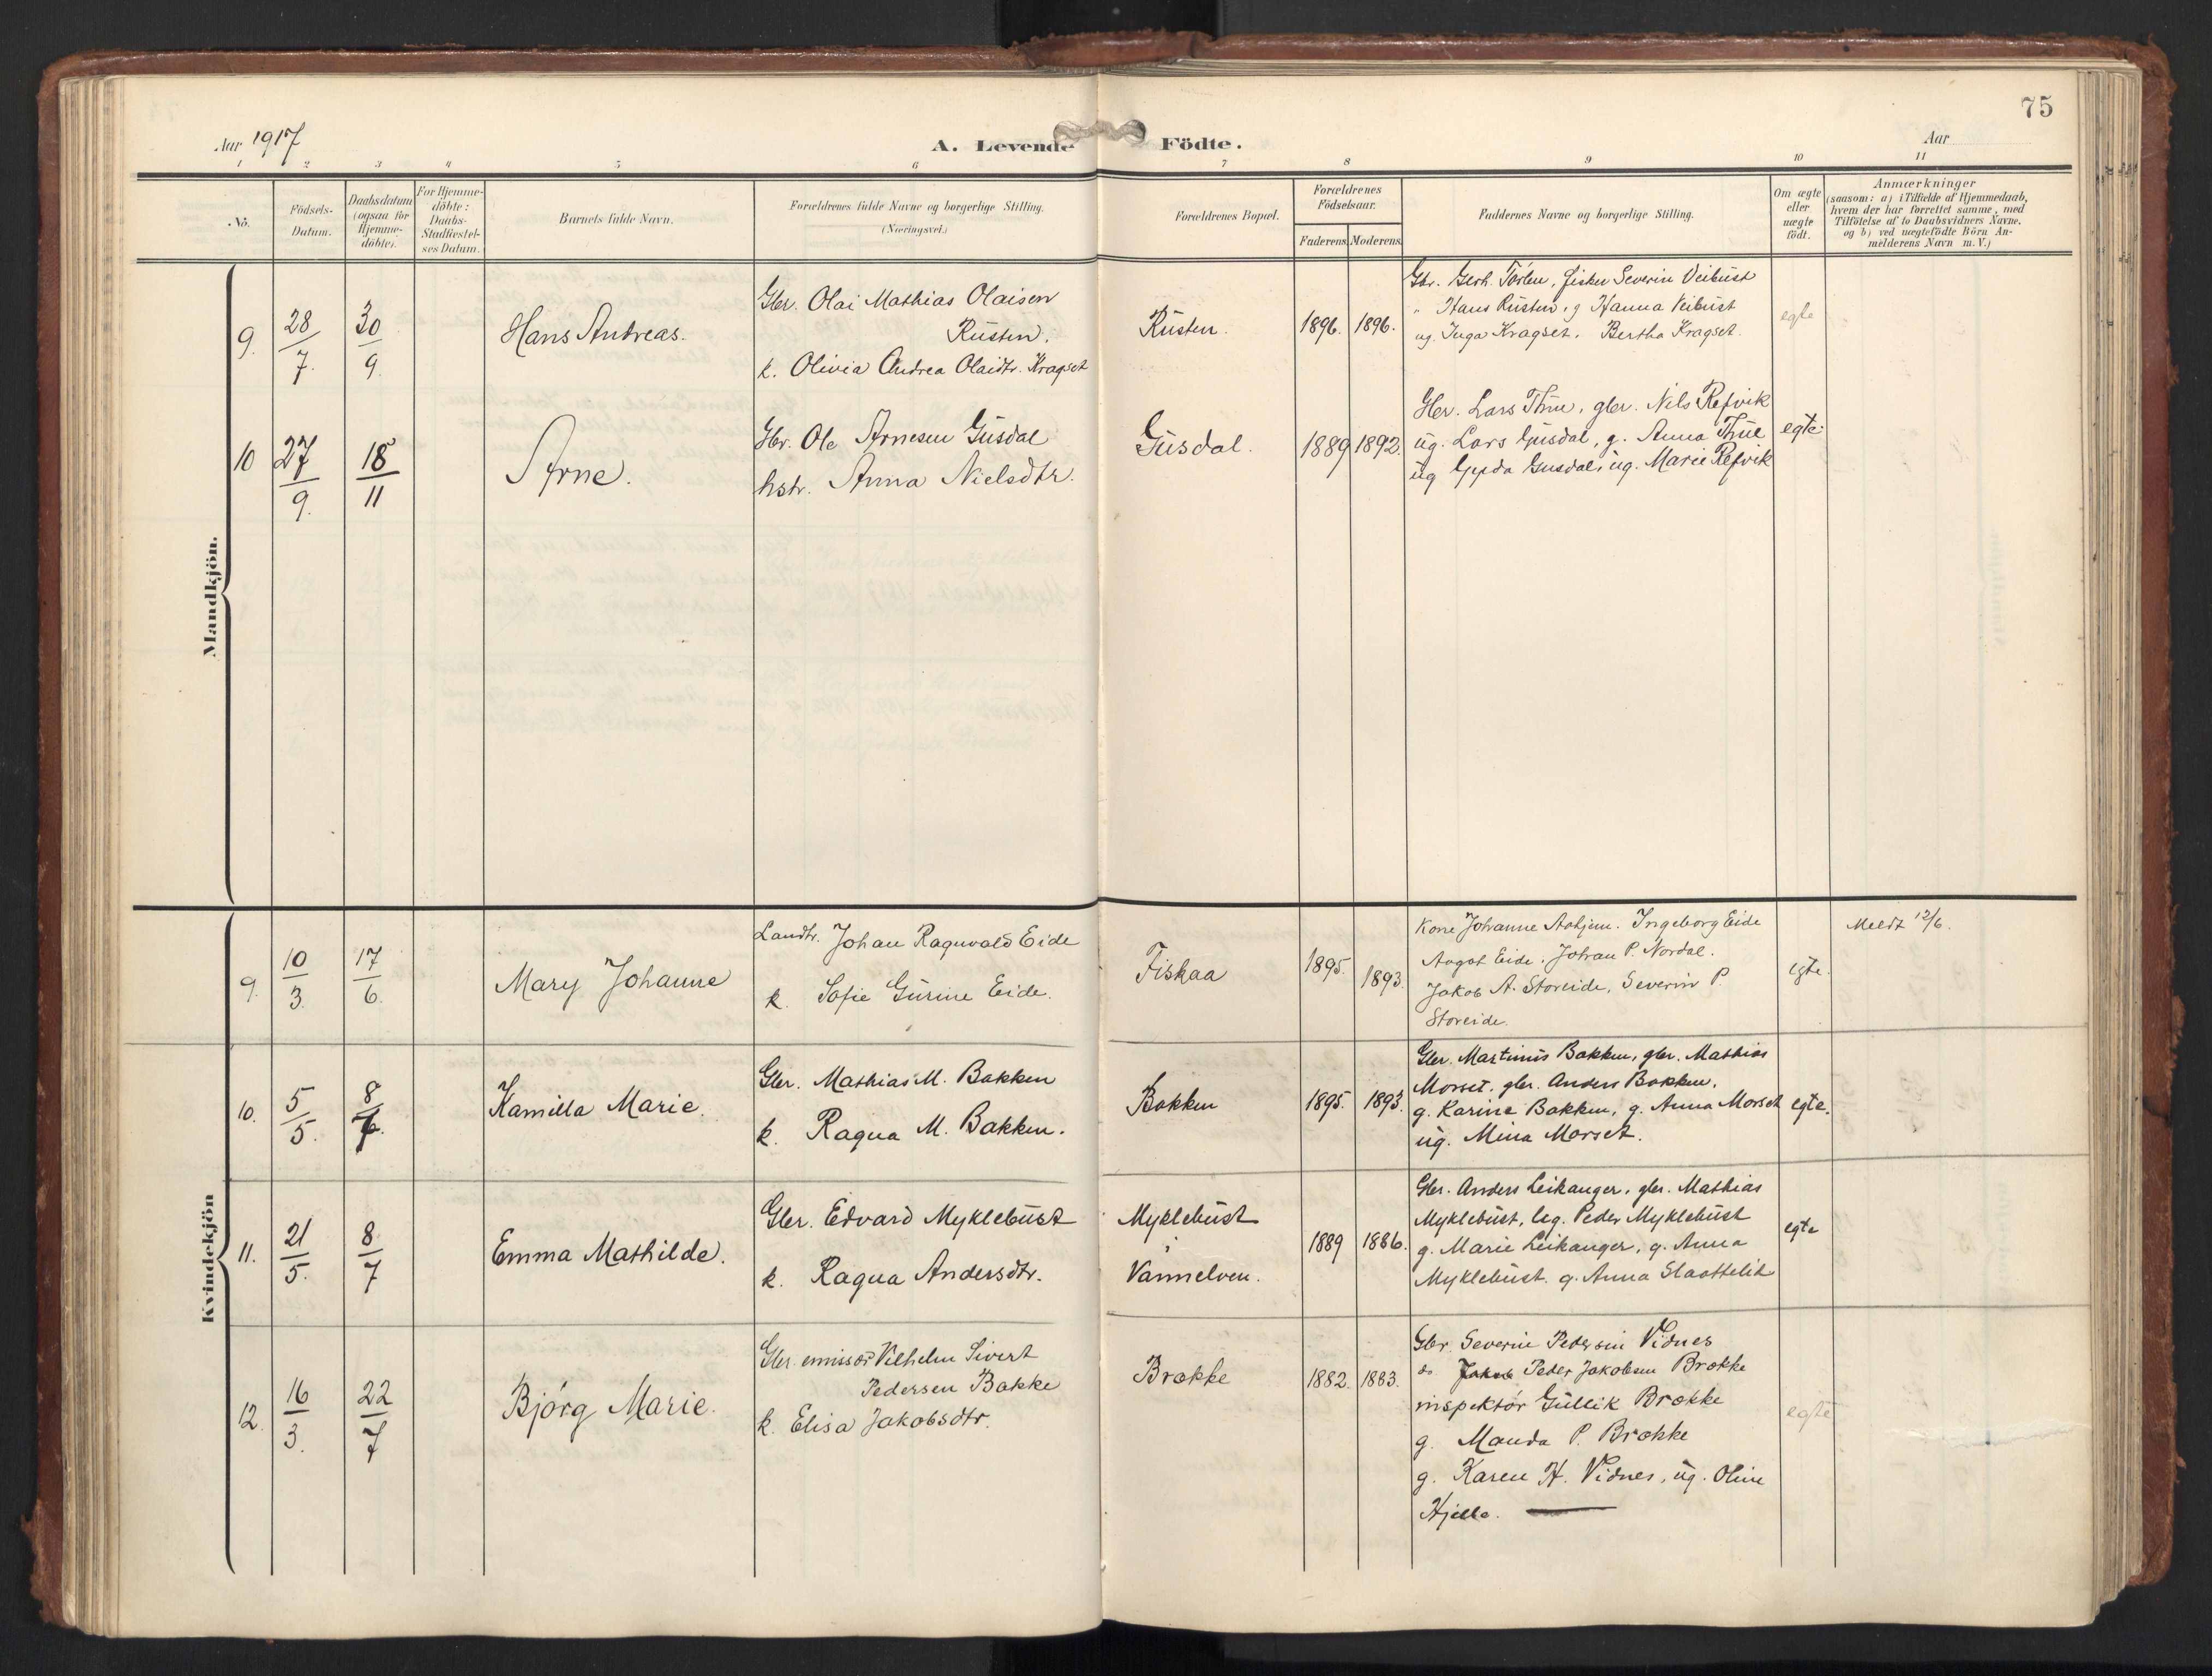 75
Aar 1917
A. Levende Födte.
Aar
1 2 3 4 5 6 7 8 9 10 11
No.
Födsels-
Datum.
Daabsdatum
(ogsaa for
Hjemme-
döbte).
For Hjemme-
döbte:
Daabs-
Stadfæstel-
ses Datum.
Barnets fulde Navn.
Forældrenes fulde Navne og borgerlige Stilling.
(Næringsvei.)
Forældrenes Bopæl.
Forældrenes
Födselsaar.
Faderens. Moderens.
Faddernes Navne og borgerlige Stilling.
Om ægte
eller
uægte
födt.
Anmærkninger
(saasom: a) i Tilfælde af Hjemmedaab,
hvem der har forrettet samme, med
Tilföielse af to Daabsvidners Navne,
og b) ved uægtefödte Börn An-
melderens Navn m. V.)
Mandkjön.
9. 28/7. 30/9.
Hans Andreas.
Gbr. Olai Mathias Olaisen
Rusten.
k. Olivia Andrea Olaidtr. Kragset
Rusten.
1896. 1896.
Gbr. Gerh. fisker Severin Veibust
" Hans Rusten, g Hanna Veibust
ug. Inga Kragset. Bertha Kragset.
egte
10 27/9. 18/11
Arne.
Gbr. Ole Arnesen Gusdal
hstr. Anna Nielsdtr.
Gusdal.
1889 1892.
Gbr. Lars Thue, gbr. Nils Refvik
ug. Lars Gusdal, g. Anna Thue
ug Gusdal, ug. Marie Refvik
egte.
Kvindekjön
9. 10/3. 17/6.
Mary Johanne
Landh. Johan Ragnvald Eide
k. Sofie Gurine Eide.
Fiskaa
1895. 1893.
Kone Johanne Aahjem. Ingeborg Eide
Aagot Eide. Johan P. Nordal.
Jakob A. Storeide, Severin P.
Storeide.
egte.
Meldt 12/6.
10. 5/5. 8/7.
Kamilla Marie.
Gbr. Mathias M. Bakken
k. Ragna M. Bakken.
Bakken
1895. 1893.
Gbr. Martinus Bakken, gbr. Mathias
Morset. gbr. Anders Bakken.
g. Karine Bakken, g. Anna Morset
ug. Mina Morset.
egte.
11. 21/5. 8/7
Emma Mathilde.
Gbr. Edvard Myklebust
k. Ragna Andersdtr.
Myklebust
i
Vannelven.
1889 1886.
Gbr. Anders Leikanger, gbr. Mathias
Myklebust, ug. Peder Myklebust
g. Marie Leikanger, g. Anna
Myklebust. g. Anna Slaattelid
egte
12. 16/3. 22/7
Bjørg Marie.
Gbr. emissær Vilhelm Sivert
Pedersen Bakke
k. Elisa Jakobsdtr.
Brække
1882. 1883.
Gbr. Severin Pedersen Vidnes
do Peder Jakobsen Brække
inspektør Gullik Brække
g. Manda P. Brække
g. Karen H. Vidnes, ug. Oline
Hjelle.
egte